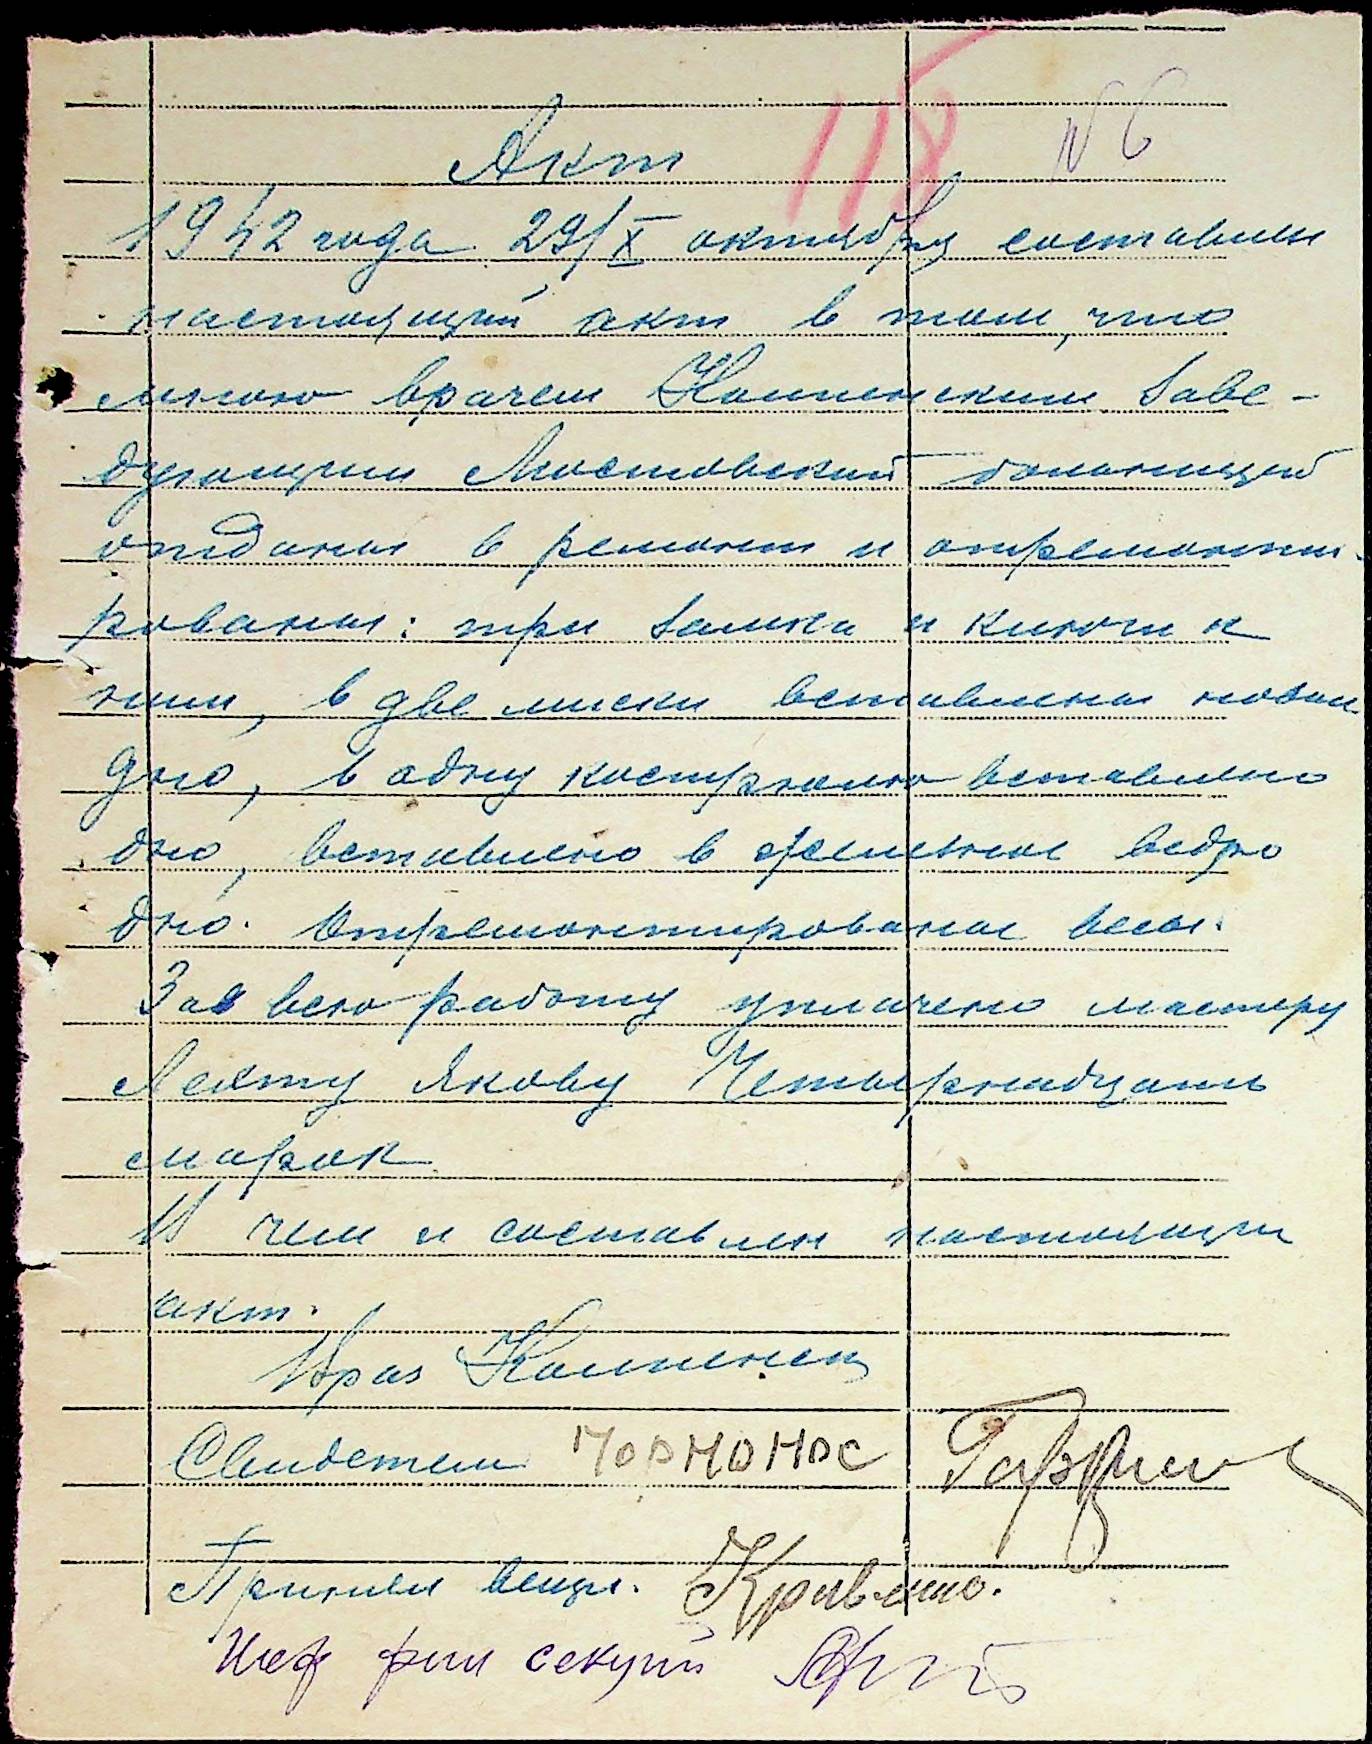 118 N 6
Акт
1942 года 29/X октября составлен
настоящий акт в том, что
мною врачем Каменским заве-
дующим Мостовской больницей
отданы в ремонт и отремонти-
рованы: три замка и ключи к
ним, в две миски вставлены новые
дно, в одну кострюлю вставлено
дно, вставлено в ведро
дно. Отремонтированы весы.
За всю работу уплачено мастеру
Лехту Якову Четырнадцать
марок
В чем и составлен настоящи
акт.
Враз Каменец
Свидетели МОРМОНОС
Принял вещи.
Шеф фин секций